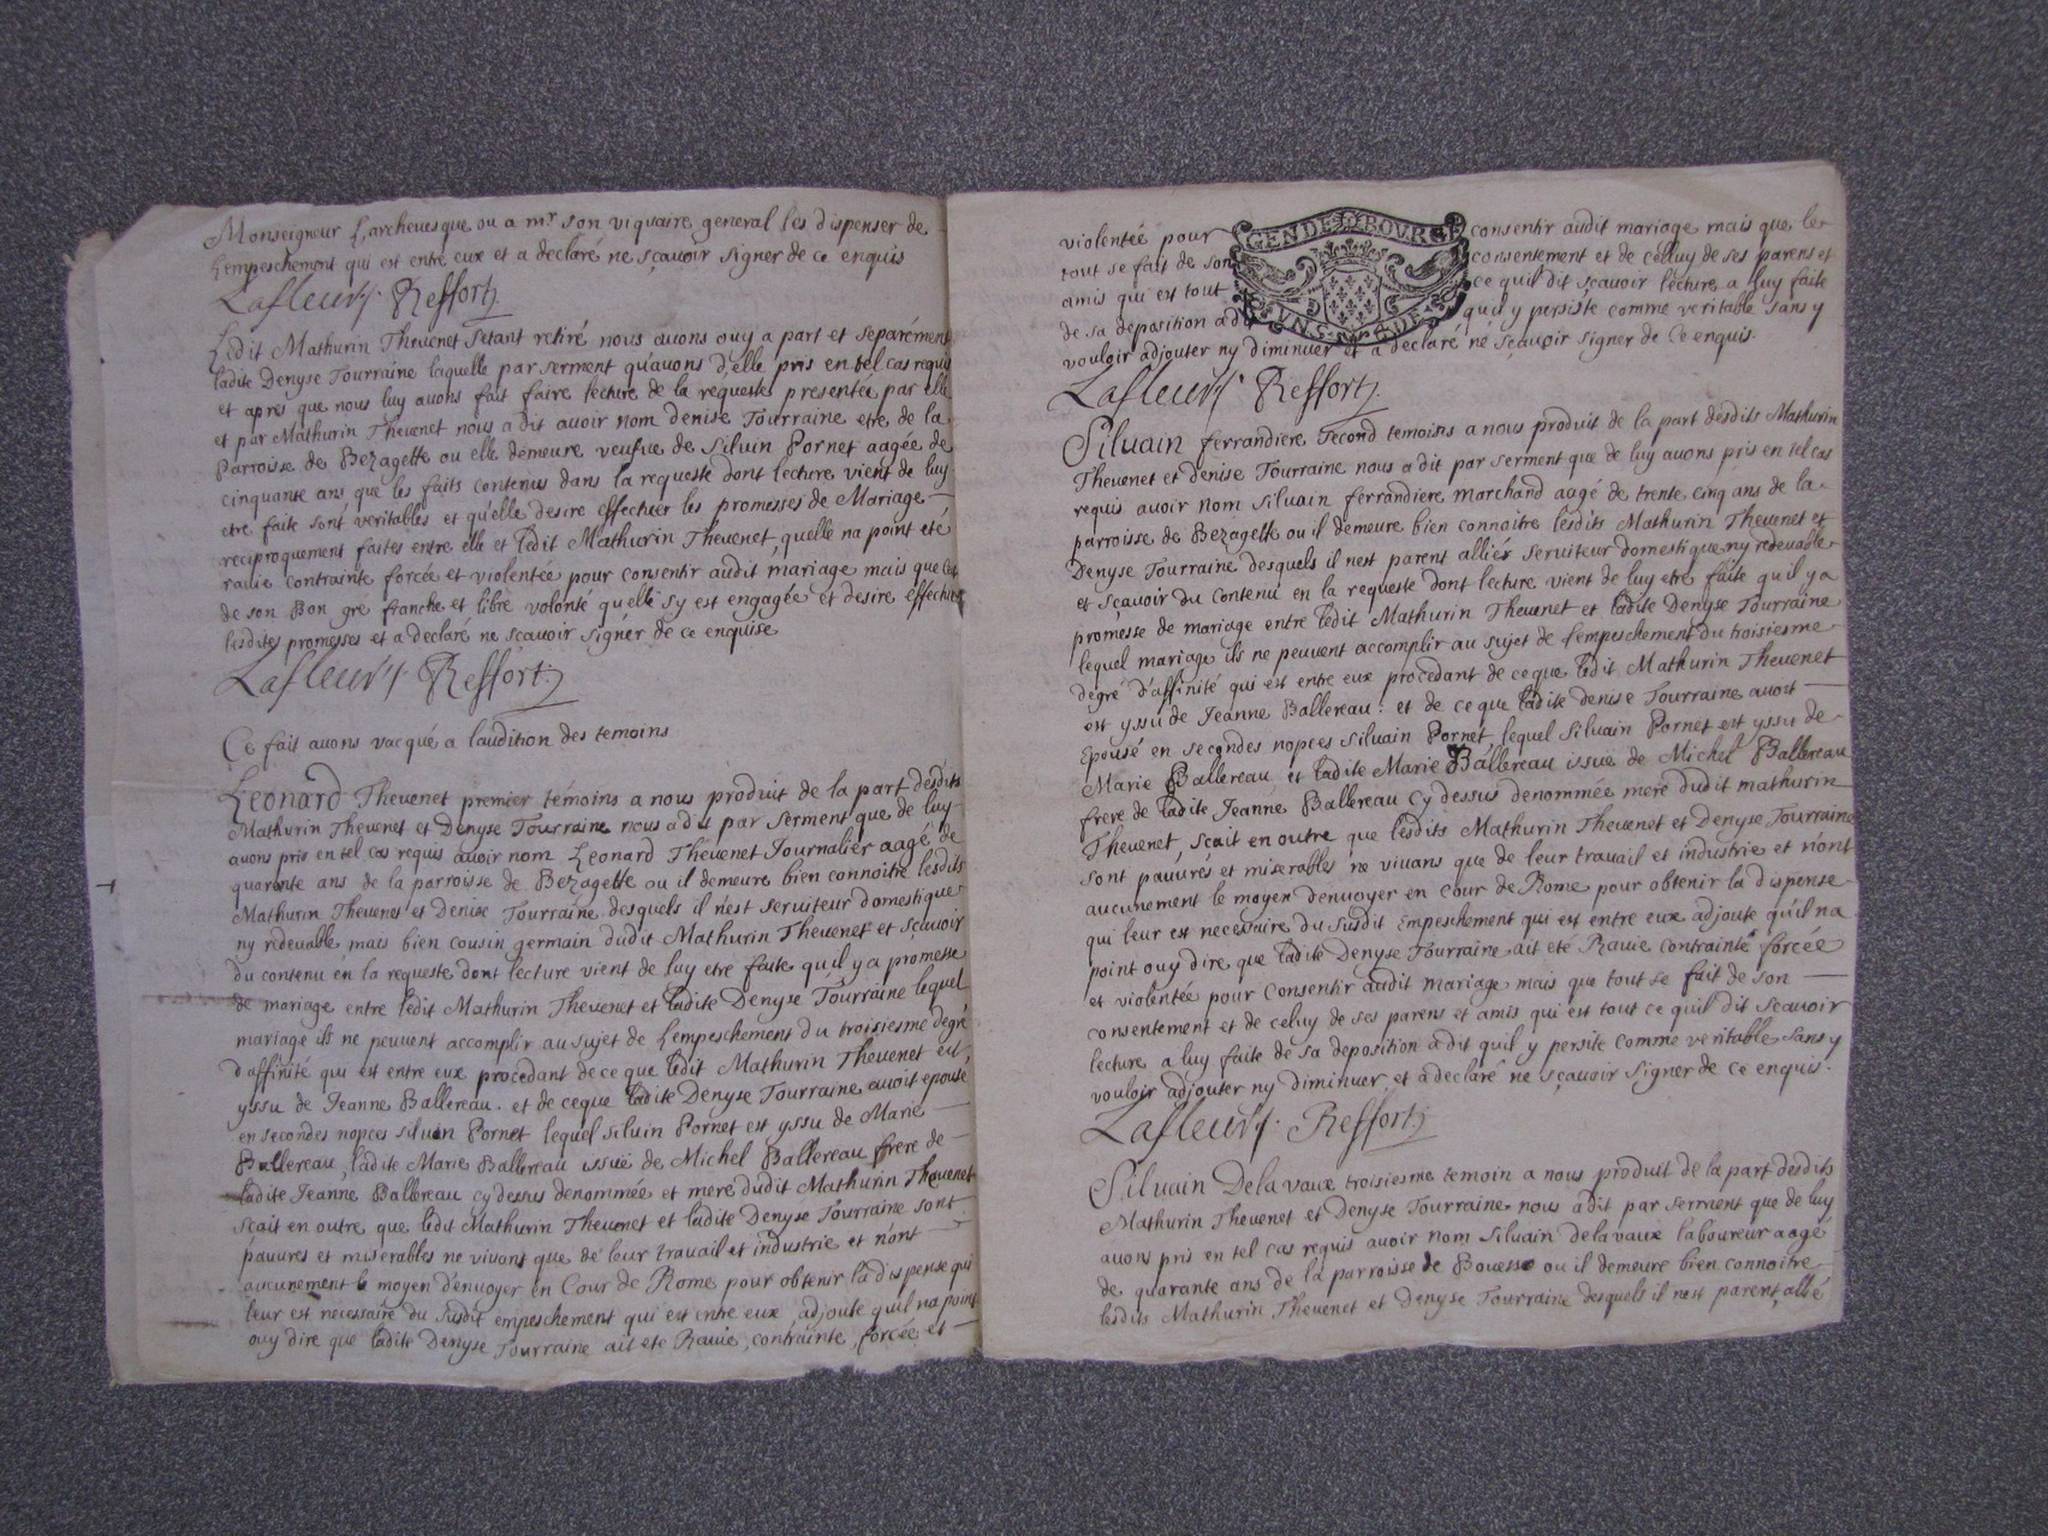 Monseigneur l'archevesque ou a mr son viquaire general les dispenser de
l'empeschement qui est entre eux et a declaré ne sçauoir signer de ce enquis
Lafleur Reffort
Ledit Mathurin Theuenet setant retiré nous auons ouy a part et separément
ladite Denyse Tourraine laquelle par serment qu'auons d'elle pris en tel cas requis
et apres que nous luy auons fait faire lecture de la requeste presentée par elle
et par Mathurin Theuenet nous a dit auoir nom denise Tourraine etre de la
Parroisse de Bezagette ou elle demeure veufue de Siluin Pornet aagée de
cinquante ans que les faits contenus dans la requeste dont lecture vient de luy
etre faite sont veritables et qu'elle desire effectuer les promesses de Mariage
reciproquement faites entre elle et ledit Mathurin Theuenet, quelle na point eté
rauie contrainte forcée et violentée pour consentir audit mariage mais que cest
de son Bon gré franche et libre volonté quelle sy est engagée et desire effectuer
lesdites promesses et a declaré ne scauoir signer de ce enquise
Lafleur Reffort
Ce fait auons vacqué a laudition des temoins
Leonard Theuenet premier témoins a nous produit de la part desdits
Mathurin Theuenet et Denyse Tourraine nous a dit par serment que de luy
auons pris en tel cas requis auoir nom Leonard Theuenet Journalier aagé de
quarante ans de la parroisse de Bezagette ou il demeure bien connoitre lesdits
Mathurin Theuenet et Denise Tourraine desquels il n'est seruiteur domestique
ny redeuable mais bien cousin germain dudit Mathurin Theuenet et sçauoir
du contenu en la requeste dont lecture vient de luy etre faite qu'il y a promesse
de mariage entre ledit Mathurin Theuenet et ladite Denyse Tourraine lequel
mariage ils ne peuuent accomplir au sujet de l'empeschement du troisiesme degré
d'affinité qui est entre eux procedant de ce que ledit Mathurin Theuenet est
yssu de Jeanne Ballereau. et de ceque ladite Denyse Tourraine auoit epousé
en secondes nopces siluin Pornet lequel siluin Pornet est yssu de Marie
Ballereau, ladite Marie Ballereau issuë de Michel Ballereau frere de
ladite Jeanne Ballereau cy dessus denommée et mere dudit Mathurin Theuenet
scait en outre que ledit Mathurin Theuenet et ladite Denyse Tourraine sont
pauures et miserables ne viuant que de leur trauail et industrie et n'ont
aucunement le moyen d'enuoyer en Cour de Rome pour obtenir la dispense qui
leur est necessaire du susdit empeschement qui est entre eux, adjoute quil na point
ouy dire que ladite Denyse Tourraine ait ete Rauie, contrainte, forcée et
violentée pour consentir audit mariage mais que le
tout se fait de son consentement et de celluy de ses parens et
amis qui est tout ce quil dit sçauoir lecture a luy faite
de sa deposition a dit quil y persiste comme veritable sans y
vouloir adjouter ny diminuer et a declaré ne sçauoir signer de ce enquis.
GEN DE BOVRGE
VN S DE
Lafleur Reffort
Siluain ferrandiere second temoins a nous produit de la part desdits Mathurin
Theuenet et denise Tourraine nous a dit par serment que de luy auons pris en tel cas
requis auoir nom siluain ferrandiere marchand aagé de trente cinq ans de la
parroisse de Bezagette ou il demeure bien connoitre lesdits Mathurin Theuenet et
Denyse Tourraine desquels il nest parent alliér seruiteur domestique ny redeuable
et sçauoir du contenu en la requeste dont lecture vient de luy etre faite quil y a
promesse de mariage entre ledit Mathurin Theuenet et ladite Denyse Tourraine
lequel mariage ils ne peuuent accomplir au sujet de l'empeschement du troisiesme
degré d'affinité qui est entre eux procedant de ceque ledit Mathurin Theuenet
est yssu de Jeanne Ballereau: et de ce que ladite denise Tourraine auoit
Epousé en secondes nopces Siluain Pornet, lequel siluain Pornet est yssu de
Marie Ballereau et ladite Marie Ballereau issuë de Michel Ballereau
frere de ladite Jeanne Ballereau cy dessus denommée mere dudit mathurin
Theuenet, scait en outre que lesdits Mathurin Theuenet et Denyse Tourraine
sont pauurés et miserables ne viuans que de leur trauail et industrie et n'ont
aucunement le moyen denuoyer en cour de Rome pour obtenir la dispense
qui leur est necessaire du susdit Empeschement qui est entre eux adjoute qu'il na
point ouy dire que ladite Denyse Tourraine ait eté Rauie contrainte forcée
et violentée pour consentir audit mariage mais que tout se fait de son
consentement et de celuy de ses parens et amis qui est tout ce quil dit scauoir
lecture a luy faite de sa deposition a dit quil y persite comme veritable sans y
vouloir adjouter ny diminuer et a declaré ne sçauoir signer de ce enquis.
Lafleur Reffort
Siluain Delavaux troisiesme temoin a nous produit de la part desdits
Mathurin Theuenet et Denyse Tourraine nous a dit par serment que de luy
auons pris en tel cas requis auoir nom Siluain delavaux laboureur aagé
de quarante ans de la parroisse de Bouesse ou il demeure bien connoitre
lesdits Mathurin Theuenet et Denyse Tourraine desquels il nest parent, allié